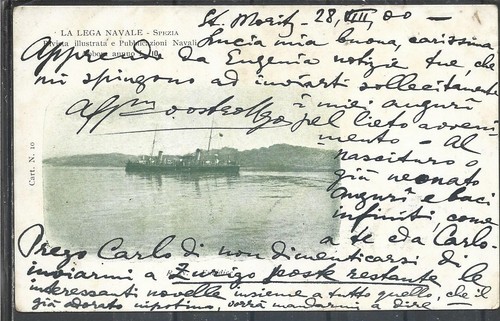 St. Moritz - 28, VII, 00 -
LA LEGA NAVALE - SPEZIA
Rivista illustrata e Pubblicazioni Navali
anno L. 10
Lucia mia buona, carissima,
Apprendo da Eugenia notizie tue, che
mi spingono ad inviarti sollecitamente
i miei auguri
pel lieto avveni-
mento - al
nascituro o
già neonato
auguri e baci
infiniti come
a te e da Carlo.
Cart. N. 10
Prego Carlo di non dimenticarsi di
inviarmi a Zurigo poste restante le
interessanti novelle insieme a tutto quello, che il
già adorato nipotino, vorrà mandarmi a dire